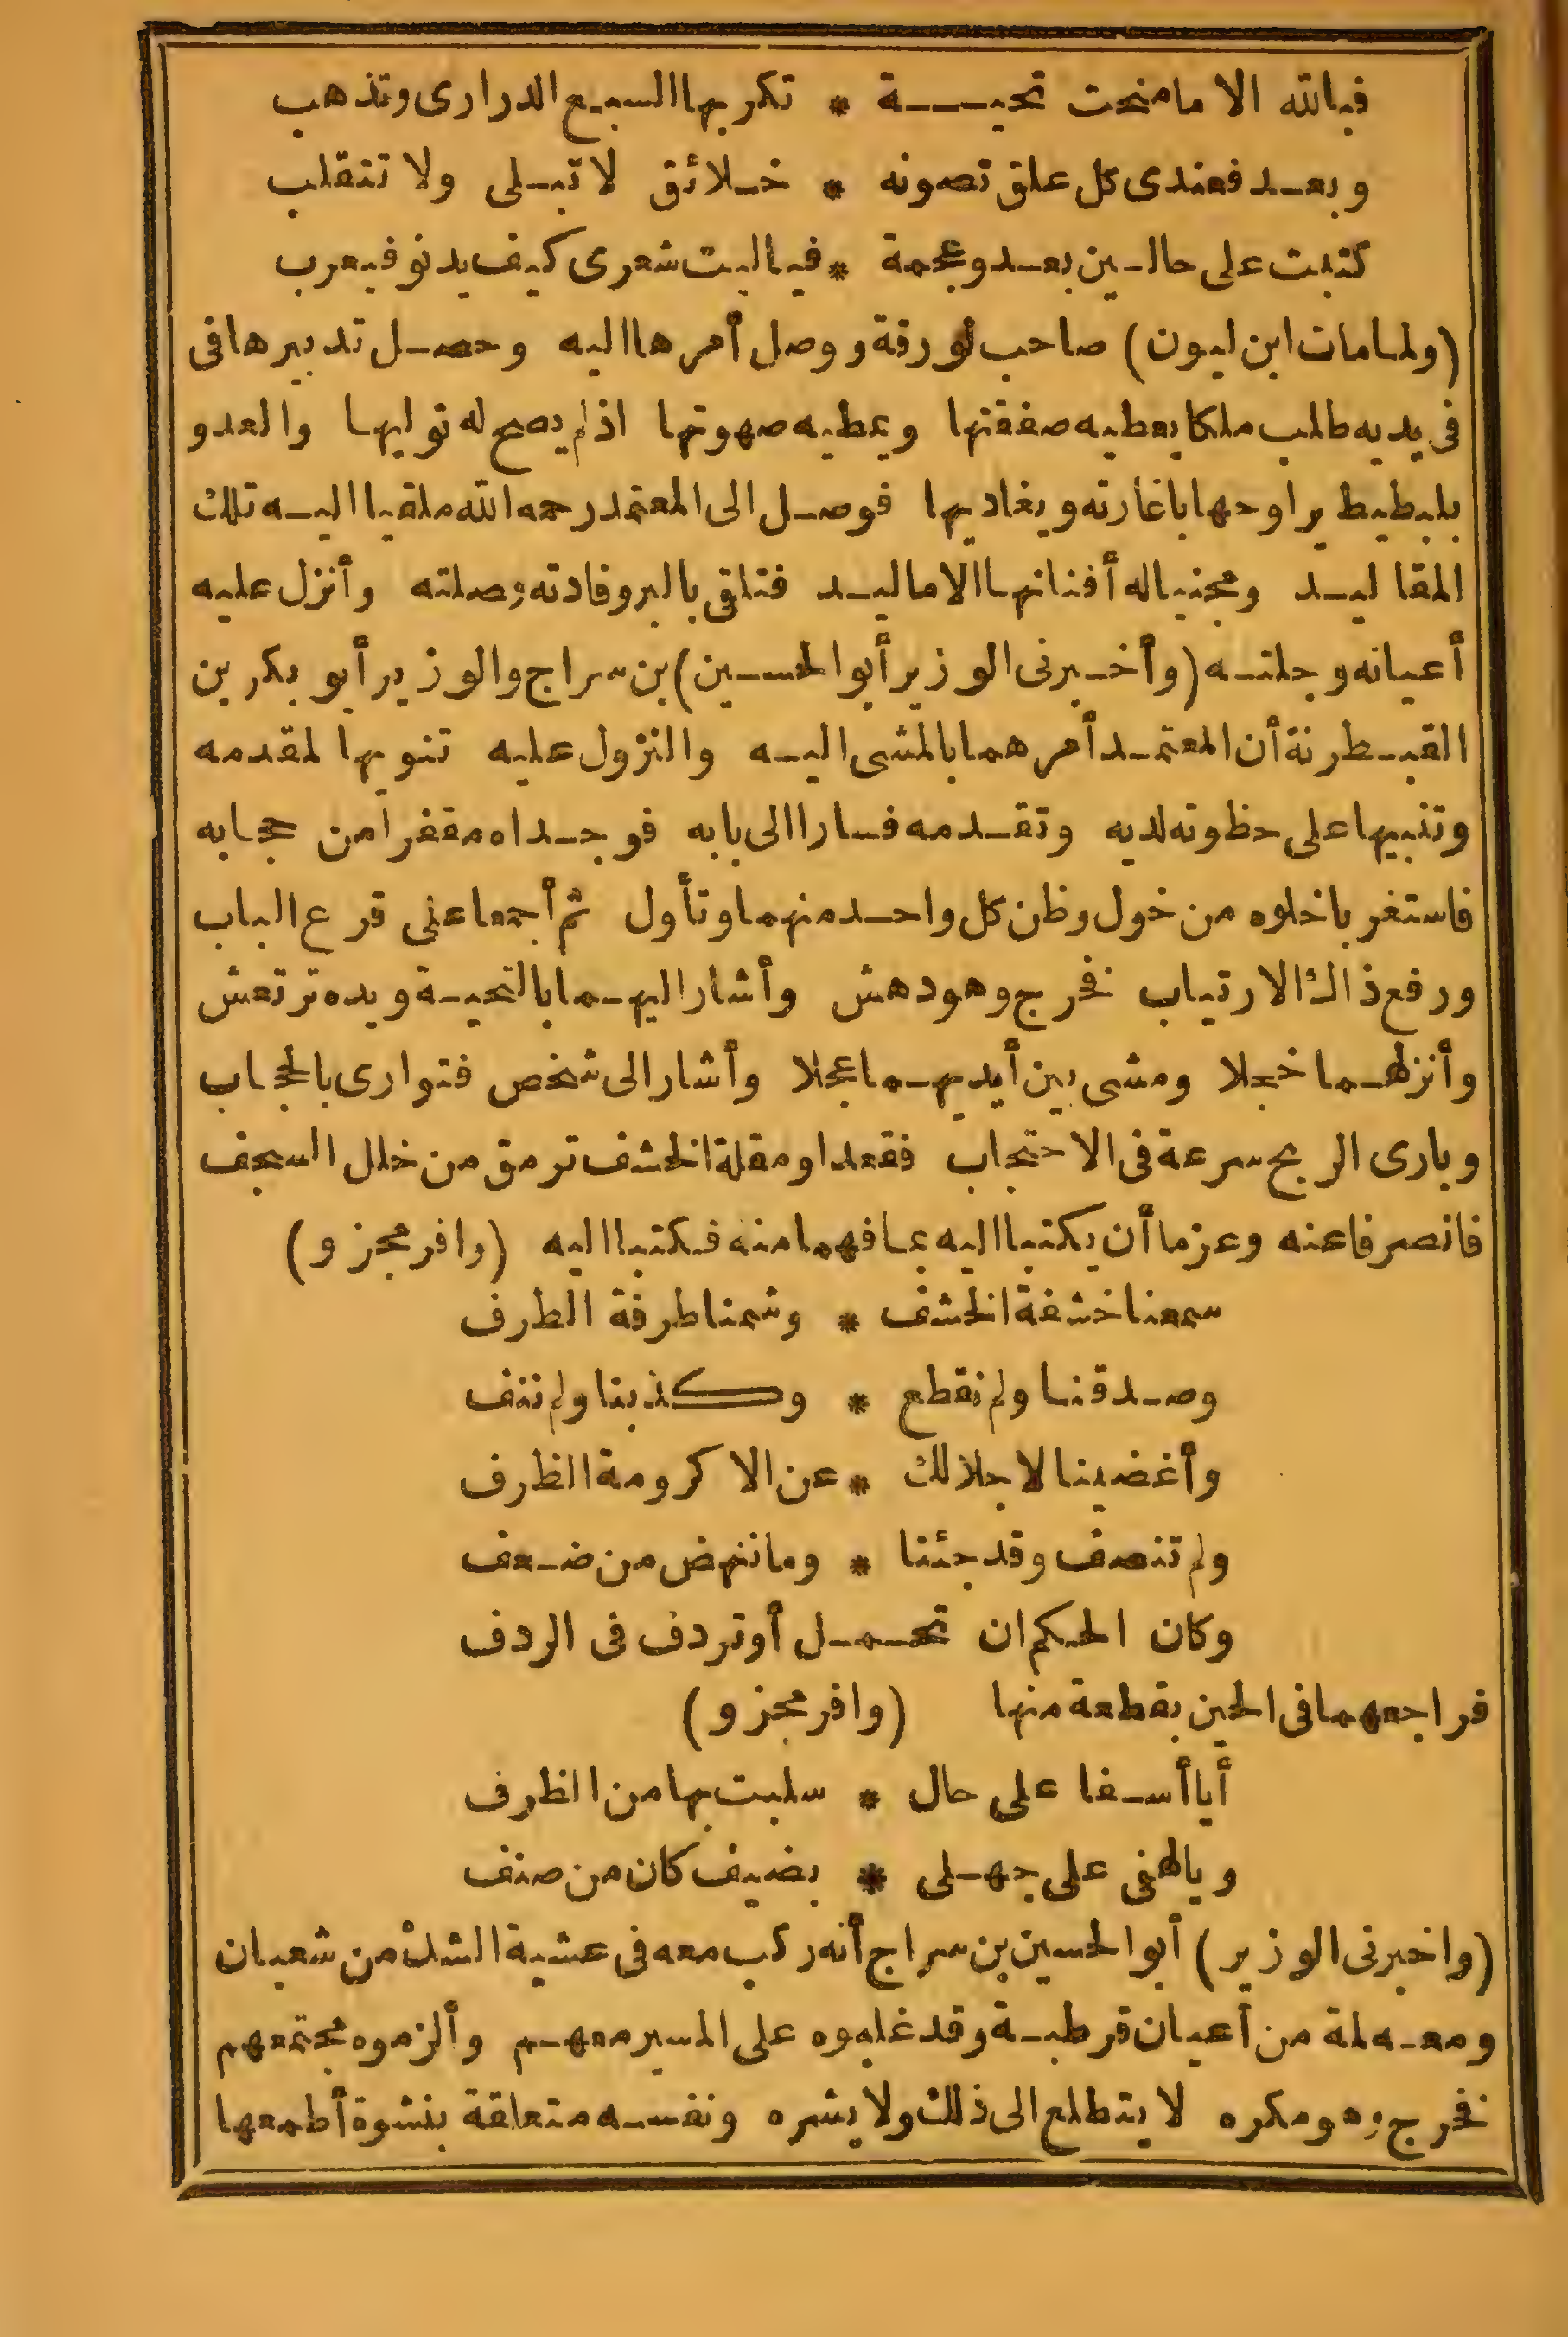 فبالله الا ما منحت تحيـــة * تكر بها السبع الدرارى وتذهب
وبعد فعندى كل علق تصونه * خلائق لا تبلى ولا تنقلب
كتبت على حالين بعد وعجمة * فيا ليت شعرى كيف يدنو فيعرب
(ولما مات ابن ليون) صاحب لورقة ووصل أمرها اليه وحصل تدبيرها فى
فى يديه طلب ملكا يعطيه صفقتها ويمطيه صهوتها اذ لم يصح له توليها والعدو
بلبيطيط يراوحها باغارته ويغاديها فوصل الى المعتمد رحمه الله ملقيا اليه تلك
المقاليد ومجنيا له أفنانها الاماليد فتلقى بالبر وفادته وصلته وأنزل عليه
أعيانه وجلته (وأخبرنى الوزير أبو الحسين) بن سراج والوزير أبو بكر بن
القبطرنة أن المعتمد أمرهما بالمشى اليه والنزول عليه تنويها لمقدمه
وتنبيها على حظوته لديه وتقدمه فسارا الى بابه فوجداه مقفرا من حجابه
فاستغربا خلوه من خول وظن كل واحد منهما وتأول ثم أجمعا على قرع الباب
ورفع ذاك الارتياب فخرج وهو دهش وأشار اليهما بالتحية ويده ترتعش
وأنزلهما خجلا ومشى بين أيديهما عجلا وأشار الى شخص فتوارى بالحجاب
وبارى الريح سرعة فى الاحتجاب فقعدا ومقلة الخشف ترمق من خلل السجف
فانصرفا عنه وعزما أن يكتبا اليه بما فهما منه فكتبا اليه (وافر مجزو)
سمعنا خشفة الخشف * وشمنا طرفة الطرف
وصدقنا ولم نقطع * وكذبنا ولم ننف
وأغضينا لاجلالك * عن الاكرومة الظرف
ولم تنصف وقد جئنا * وما ننهض من ضعف
وكان الحكم ان تحمل أو تردف فى الردف
فراجعهما فى الحين بقطعة منها (وافر مجزو)
أيا أسفا على حال * سلبت بها من الظرف
ويا لهفى على جهلى * بضيف كان من صنف
(واخبرنى الوزير) أبو الحسين بن سراج أنه ركب معه فى عشية الشك من شعبان
ومعه لمة من أعيان قرطبة وقد غلبوه على المسير معهم وألزموه مجتمعهم
فخرج وهو مكره لا يتطلع الى ذلك ولا يشره ونفسه متعلقة بنشوة أطمعها